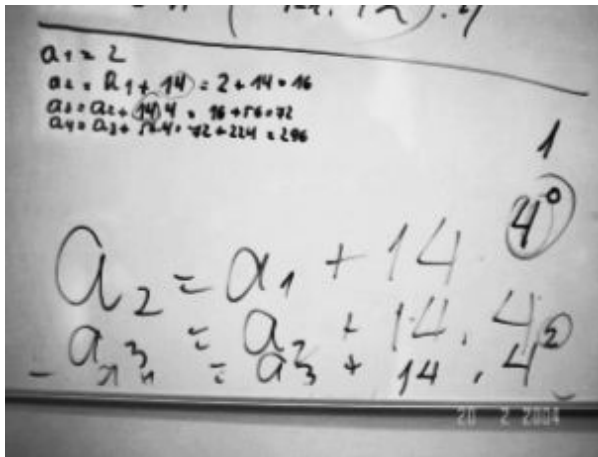 a₁ = 2
a₂ = a₁ + 14 = 2 + 14 = 16
a₃ = a₂ + 14 4 = 16 + 56 = 72
a₄ = a₃ + 56.4 = 72 + 224 = 296
1
4⁰
a₂ = a₁ + 14
a₃ = a₂ + 14 . 4
= a₃ + 14 . 4²
20 2 2004